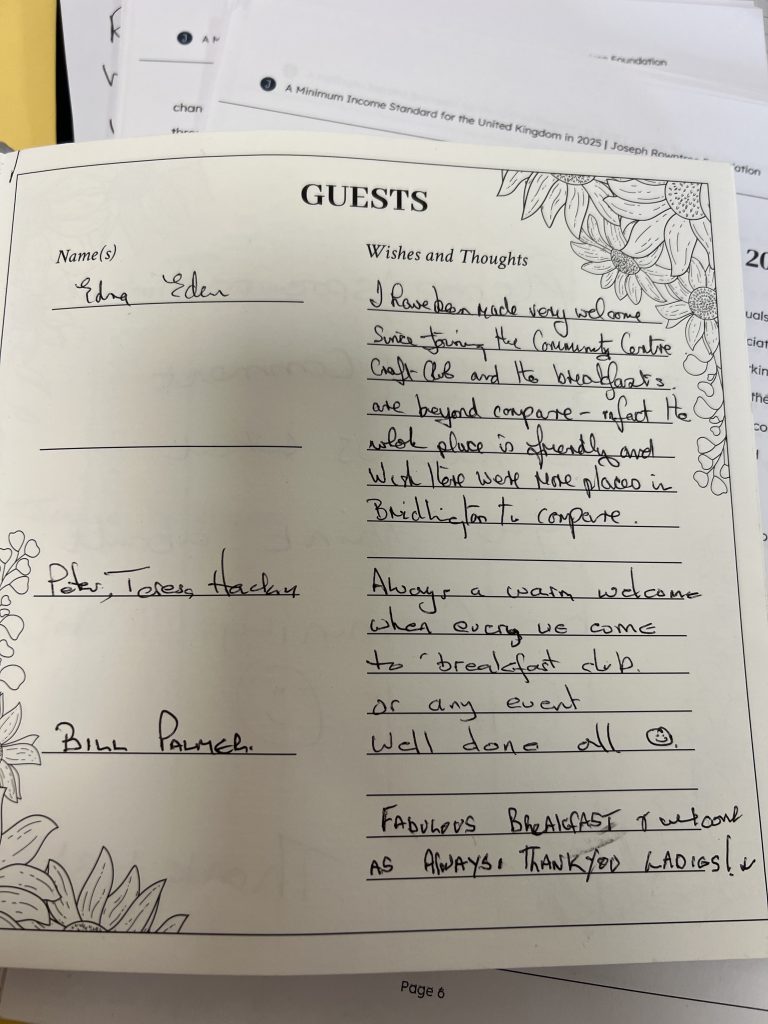 A Minimum Income Standard for the United Kingdom in 2025 | Joseph Rowntree Foundation
Foundation
chan
GUESTS
Name(s)
Wishes and Thoughts
Edna Eden
I have been made very welcome
Since joining the Community Centre
Craft Club and the breakfasts.
are beyond compare - infact the
whole place is friendly and
Wish there were more places in
Bridlington to compare.
Peter, Teresa
Always a warm welcome
when every we come
to breakfast club.
or any event
Well done all ☺.
BILL PALMER.
FABULOUS BREAKFAST & welcome
AS ALWAYS. THANKYOU LADIES!
Page 6